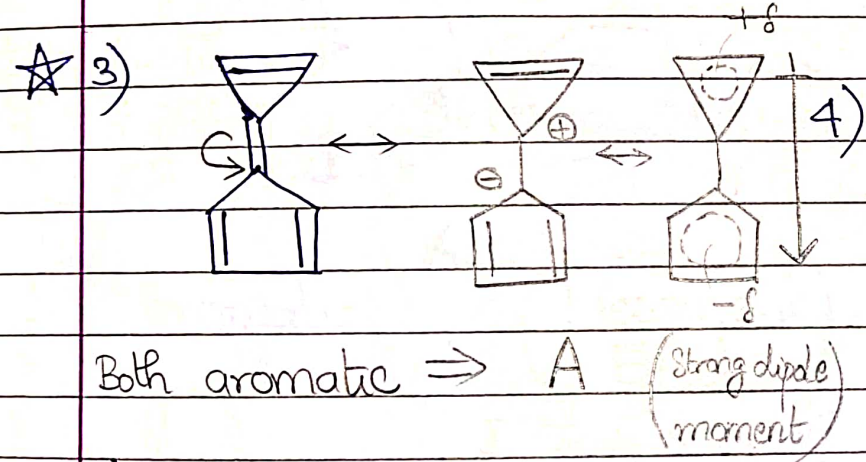 +δ
☆ 3)
4)
⊕
⊖
-δ
Both aromatic ⇒ A (Strong dipole moment)